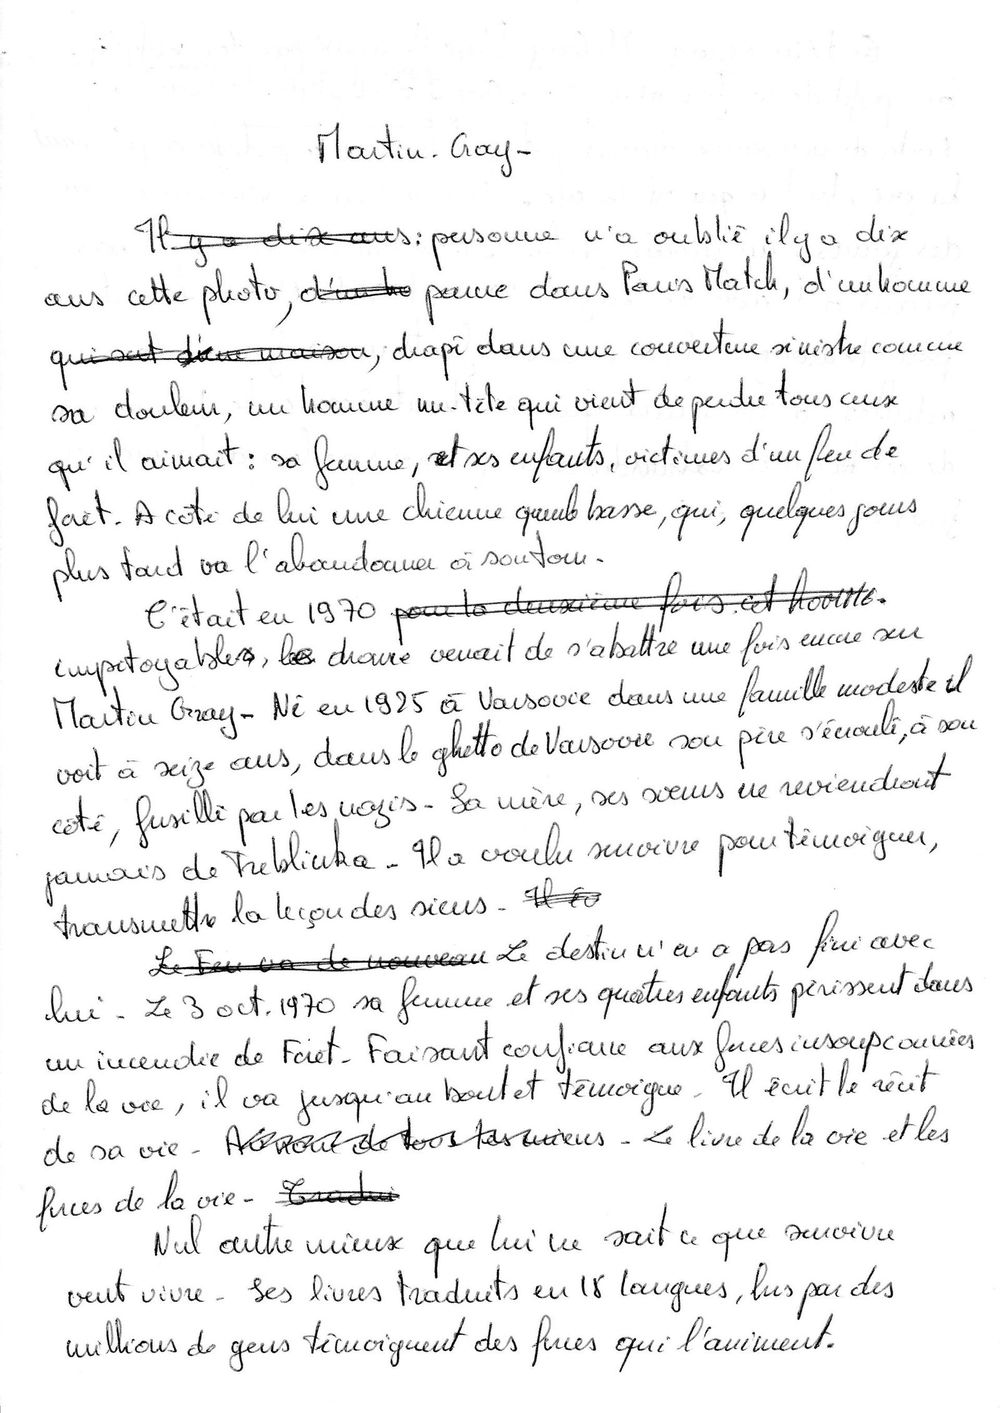 Martin. Gray -
Il y a dix ans : personne n'a oublié il y a dix
ans cette photo, d'un ho parue dans Paris Match, d'un homme
qui sort d'une maison, drapé dans une couverture sinistre comme
sa douleur, un homme nu-tête qui vient de perdre tous ceux
qu'il aimait : sa femme, et ses enfants, victimes d'un feu de
forêt. A côté de lui une chienne queue basse, qui, quelques jours
plus tard va l'abandonner à son tour.
C'était en 1970 pour la deuxième fois cet homme.
impitoyable, le drame venait de s'abattre une fois encore sur
Martin Gray - Né en 1925 à Varsovie dans une famille modeste il
voit à seize ans, dans le ghetto de Varsovie son père s'écroulé, à son
côté, fusillé par les nazis - Sa mère, ses soeurs ne reviendront
jamais de Treblinka - Il a voulu survivre pour témoigner,
transmettre la leçon des siens - Il
Le Feu va de nouveau Le destin n'en a pas fini avec
lui - Le 3 oct. 1970 sa femme et ses quatres enfants périssent dans
un incendie de Forêt - Faisant confiance aux forces insoupçonnées
de la vie, il va jusqu'au bout et témoigne - Il écrit le récit
de sa vie - Au nom de tous les miens - Le livre de la vie et les
forces de la vie - Tradui
Nul autre mieux que lui ne sait ce que survivre
veut vivre - Ses livres traduits en 18 langues, lus par des
millions de gens témoignent des forces qui l'animent.